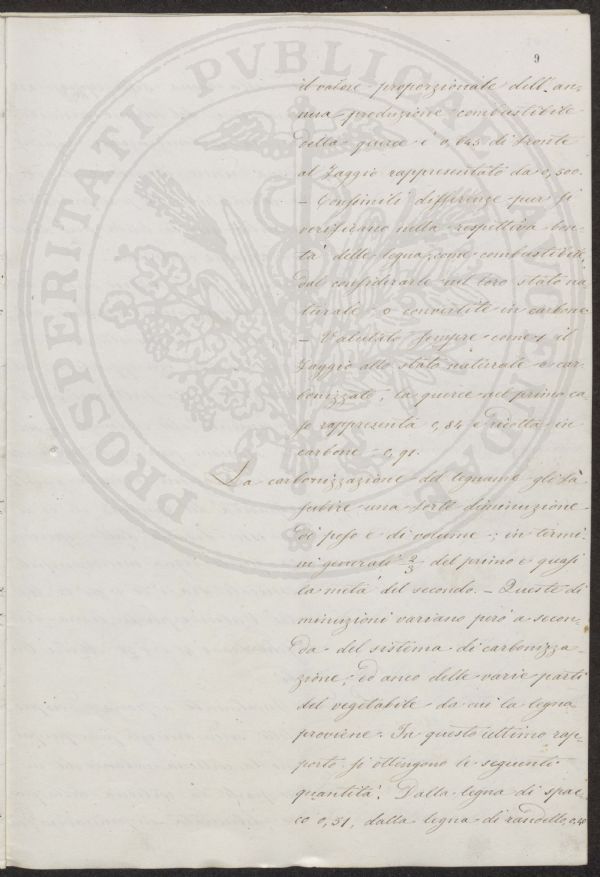 9
il valore proporzionale dell'an-
nua produzione combustibile
della querce è 0,645 di fronte
al Faggio rappresentato da 0,500.
– Consimili differenze pur si
verificano nella respettiva bon-
tà delle legna, come combustibili,
dal considerarle nel loro stato na
turale o convertite in carbone
– Valutato sempre come 1 il
Faggio allo stato naturale o car-
bonizzato, la querce nel primo ca
so rappresenta 0,84 e ridotta in
carbone 0,91.
La carbonizzazione del legname gli fà
subire una forte diminuzione
di peso e di volume; in termi-
ni generali 2/3 del primo e quasi
la metà del secondo. – Queste di
minuzioni variano però a secon-
da del sistema di carbonizza
zione, ed anco delle varie parti
del vegetabile da cui la legna
proviene. In questo ultimo rap-
porto si ottengono le seguenti
quantità. Dalla legna di spac-
co 0,51, dalla legna di randello, 0,40
PROSPERITATI PVBLICAE AVGENDAE